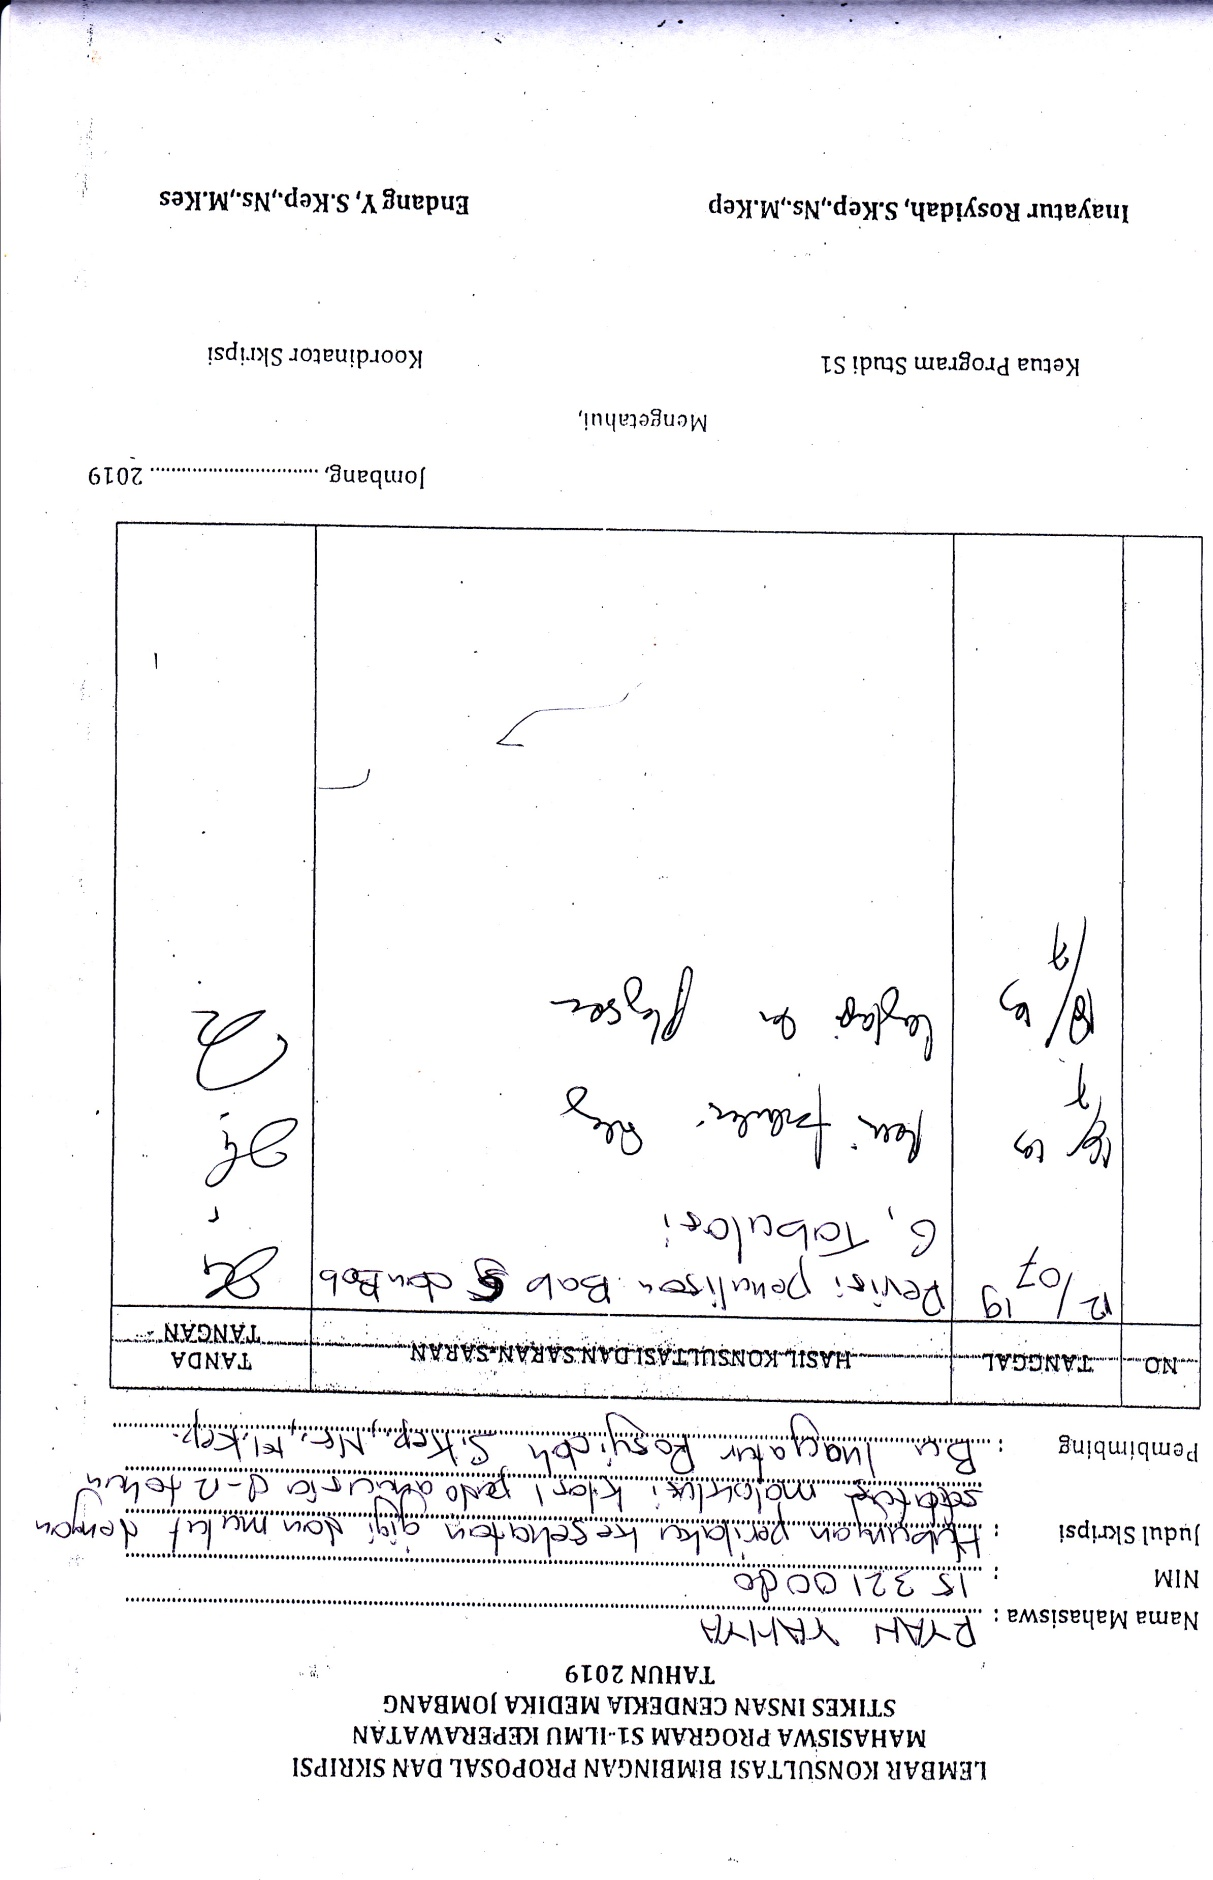 LEMBAR KONSULTASI BIMBINGAN PROPOSAL DAN SKRIPSI
MAHASISWA PROGRAM S1-ILMU KEPERAWATAN
STIKES INSAN CENDEKIA MEDIKA JOMBANG
TAHUN 2019
Nama Mahasiswa : RYAN YAHYA
NIM : 15 321 00
Judul Skripsi : Hubungan perilaku kesehatan gigi dan mulut dengan
maloklusi klas 1 pada anak usia 9-12 tahun
Pembimbing : Bu Inayatur Rosyidah S.Kep., Ns., M.Kep.
NO TANGGAL HASIL KONSULTASI DAN SARAN-SARAN TANDA
TANGAN
12/07 19 Revisi penulisan Bab 5 dan Bab
6, Tabulasi
Jombang, .................................. 2019
Mengetahui,
Ketua Program Studi S1 Koordinator Skripsi
Inayatur Rosyidah, S.Kep.,Ns.,M.Kep Endang Y, S.Kep.,Ns.,M.Kes